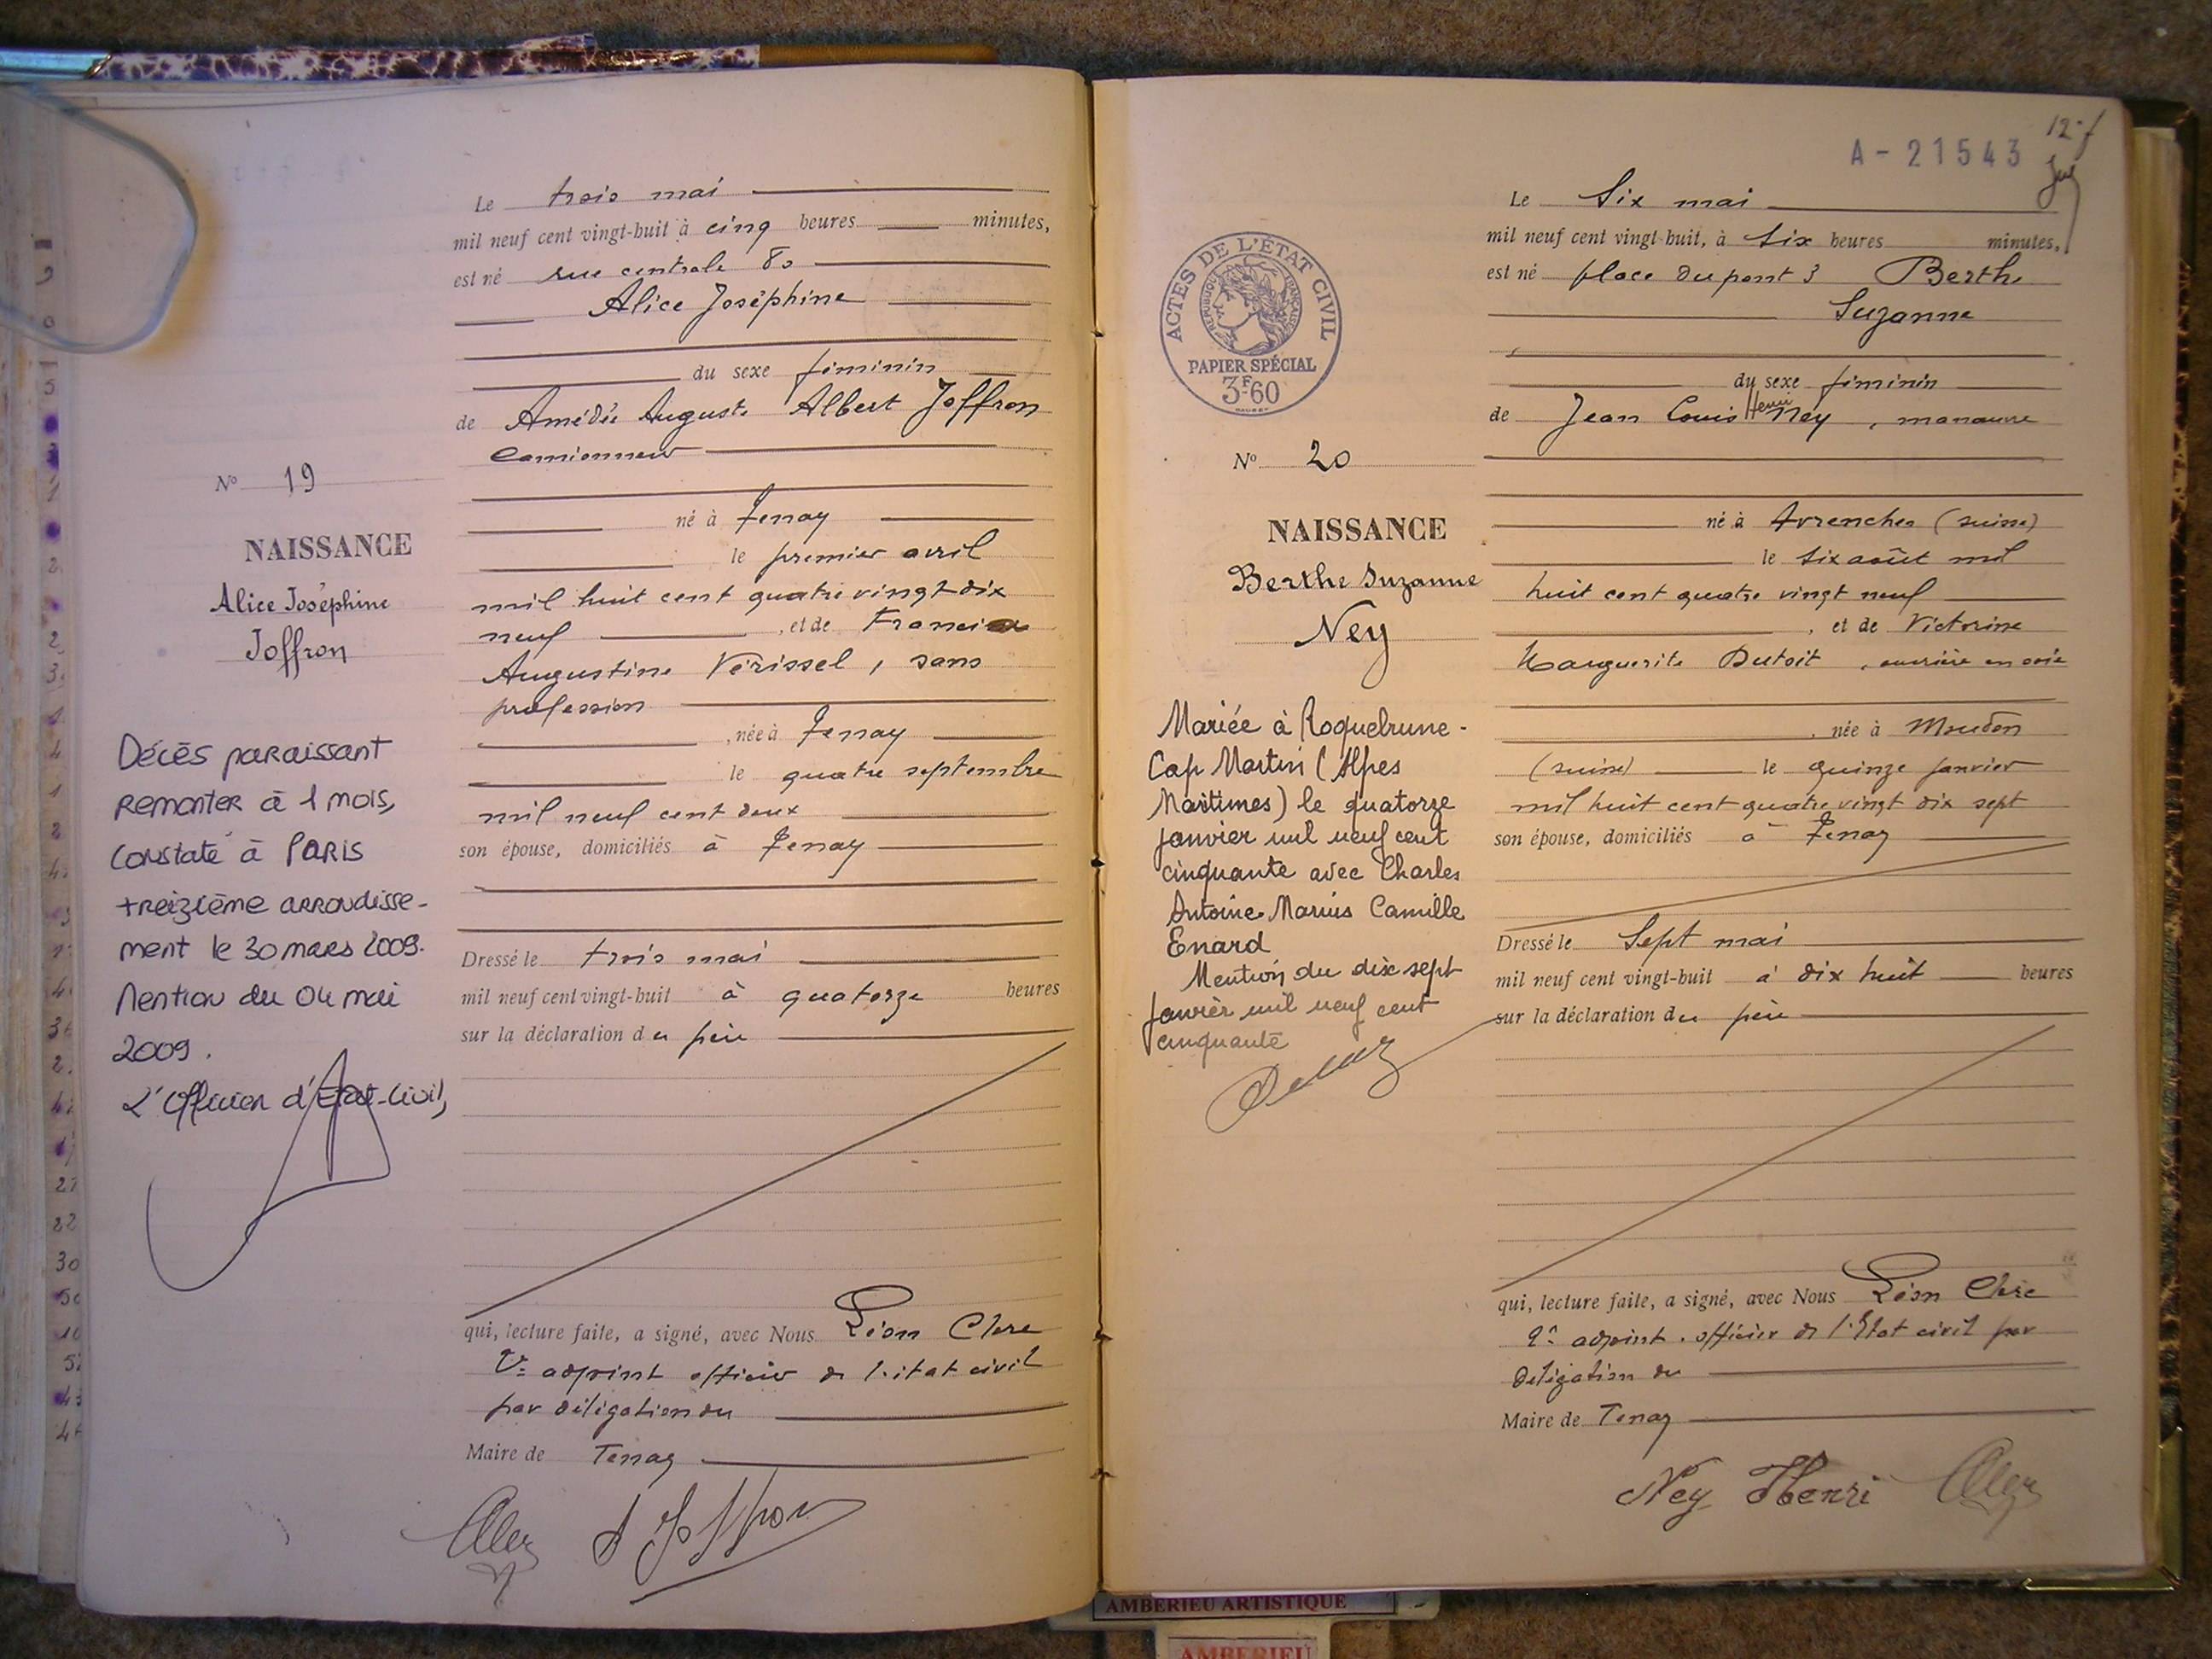 Le trois mai
mil neuf cent vingt-huit à cinq heures minutes,
est né rue centrale 80
Alice Joséphine
du sexe féminin
de Amédée Auguste Albert Joffron
camionneur
né à Tenay
le premier avril
mil huit cent quatre vingt dix
neuf , et de
Augustine Vérissel, sans
profession
, née à Tenay
le quatre septembre
mil neuf cent deux
son épouse, domiciliés à Tenay
Dressé le trois mai
mil neuf cent vingt-huit à quatorze heures
sur la déclaration du père
qui, lecture faite, a signé, avec Nous Léon Clerc
adjoint officier de l'état civil
par délégation du
Maire de Tenay
Nº 19
NAISSANCE
Alice Joséphine
Joffron
Décès paraissant
remonter à 1 mois,
constaté à PARIS
treizième arrondisse-
ment le 30 mars 2009.
Mention du 04 mai
2009.
L'Officier d'Etat-Civil,
A-21543
Le Six mai
mil neuf cent vingt-huit, à six heures minutes,
est né place du pont 3 Berthe
Suzanne
du sexe féminin
de Jean Louis Henri Ney, manœuvre
né à Avenches (suisse)
le six août mil
huit cent quatre vingt neuf
, et de Victorine
Marguerite Dutoit, ouvrière en soie
, née à Moudon
(suisse) le quinze janvier
mil huit cent quatre vingt dix sept
son épouse, domiciliés à Tenay
Dressé le Sept mai
mil neuf cent vingt-huit à dix huit heures
sur la déclaration du père
qui, lecture faite, a signé, avec Nous Léon Clerc
adjoint officier de l'Etat civil par
délégation du
Maire de Tenay
Ney Henri
ACTES DE L'ÉTAT CIVIL
RÉPUBLIQUE FRANÇAISE
PAPIER SPÉCIAL
3F60
Nº 20
NAISSANCE
Berthe Suzanne
Ney
Mariée à Roquebrune-
Cap Martin (Alpes
Maritimes) le quatorze
janvier mil neuf cent
cinquante avec Charles
Antoine Marius Camille
Enard
Mention du dix sept
janvier mil neuf cent
cinquante
AMBERIEU ARTISTIQUE
AMBERIEU